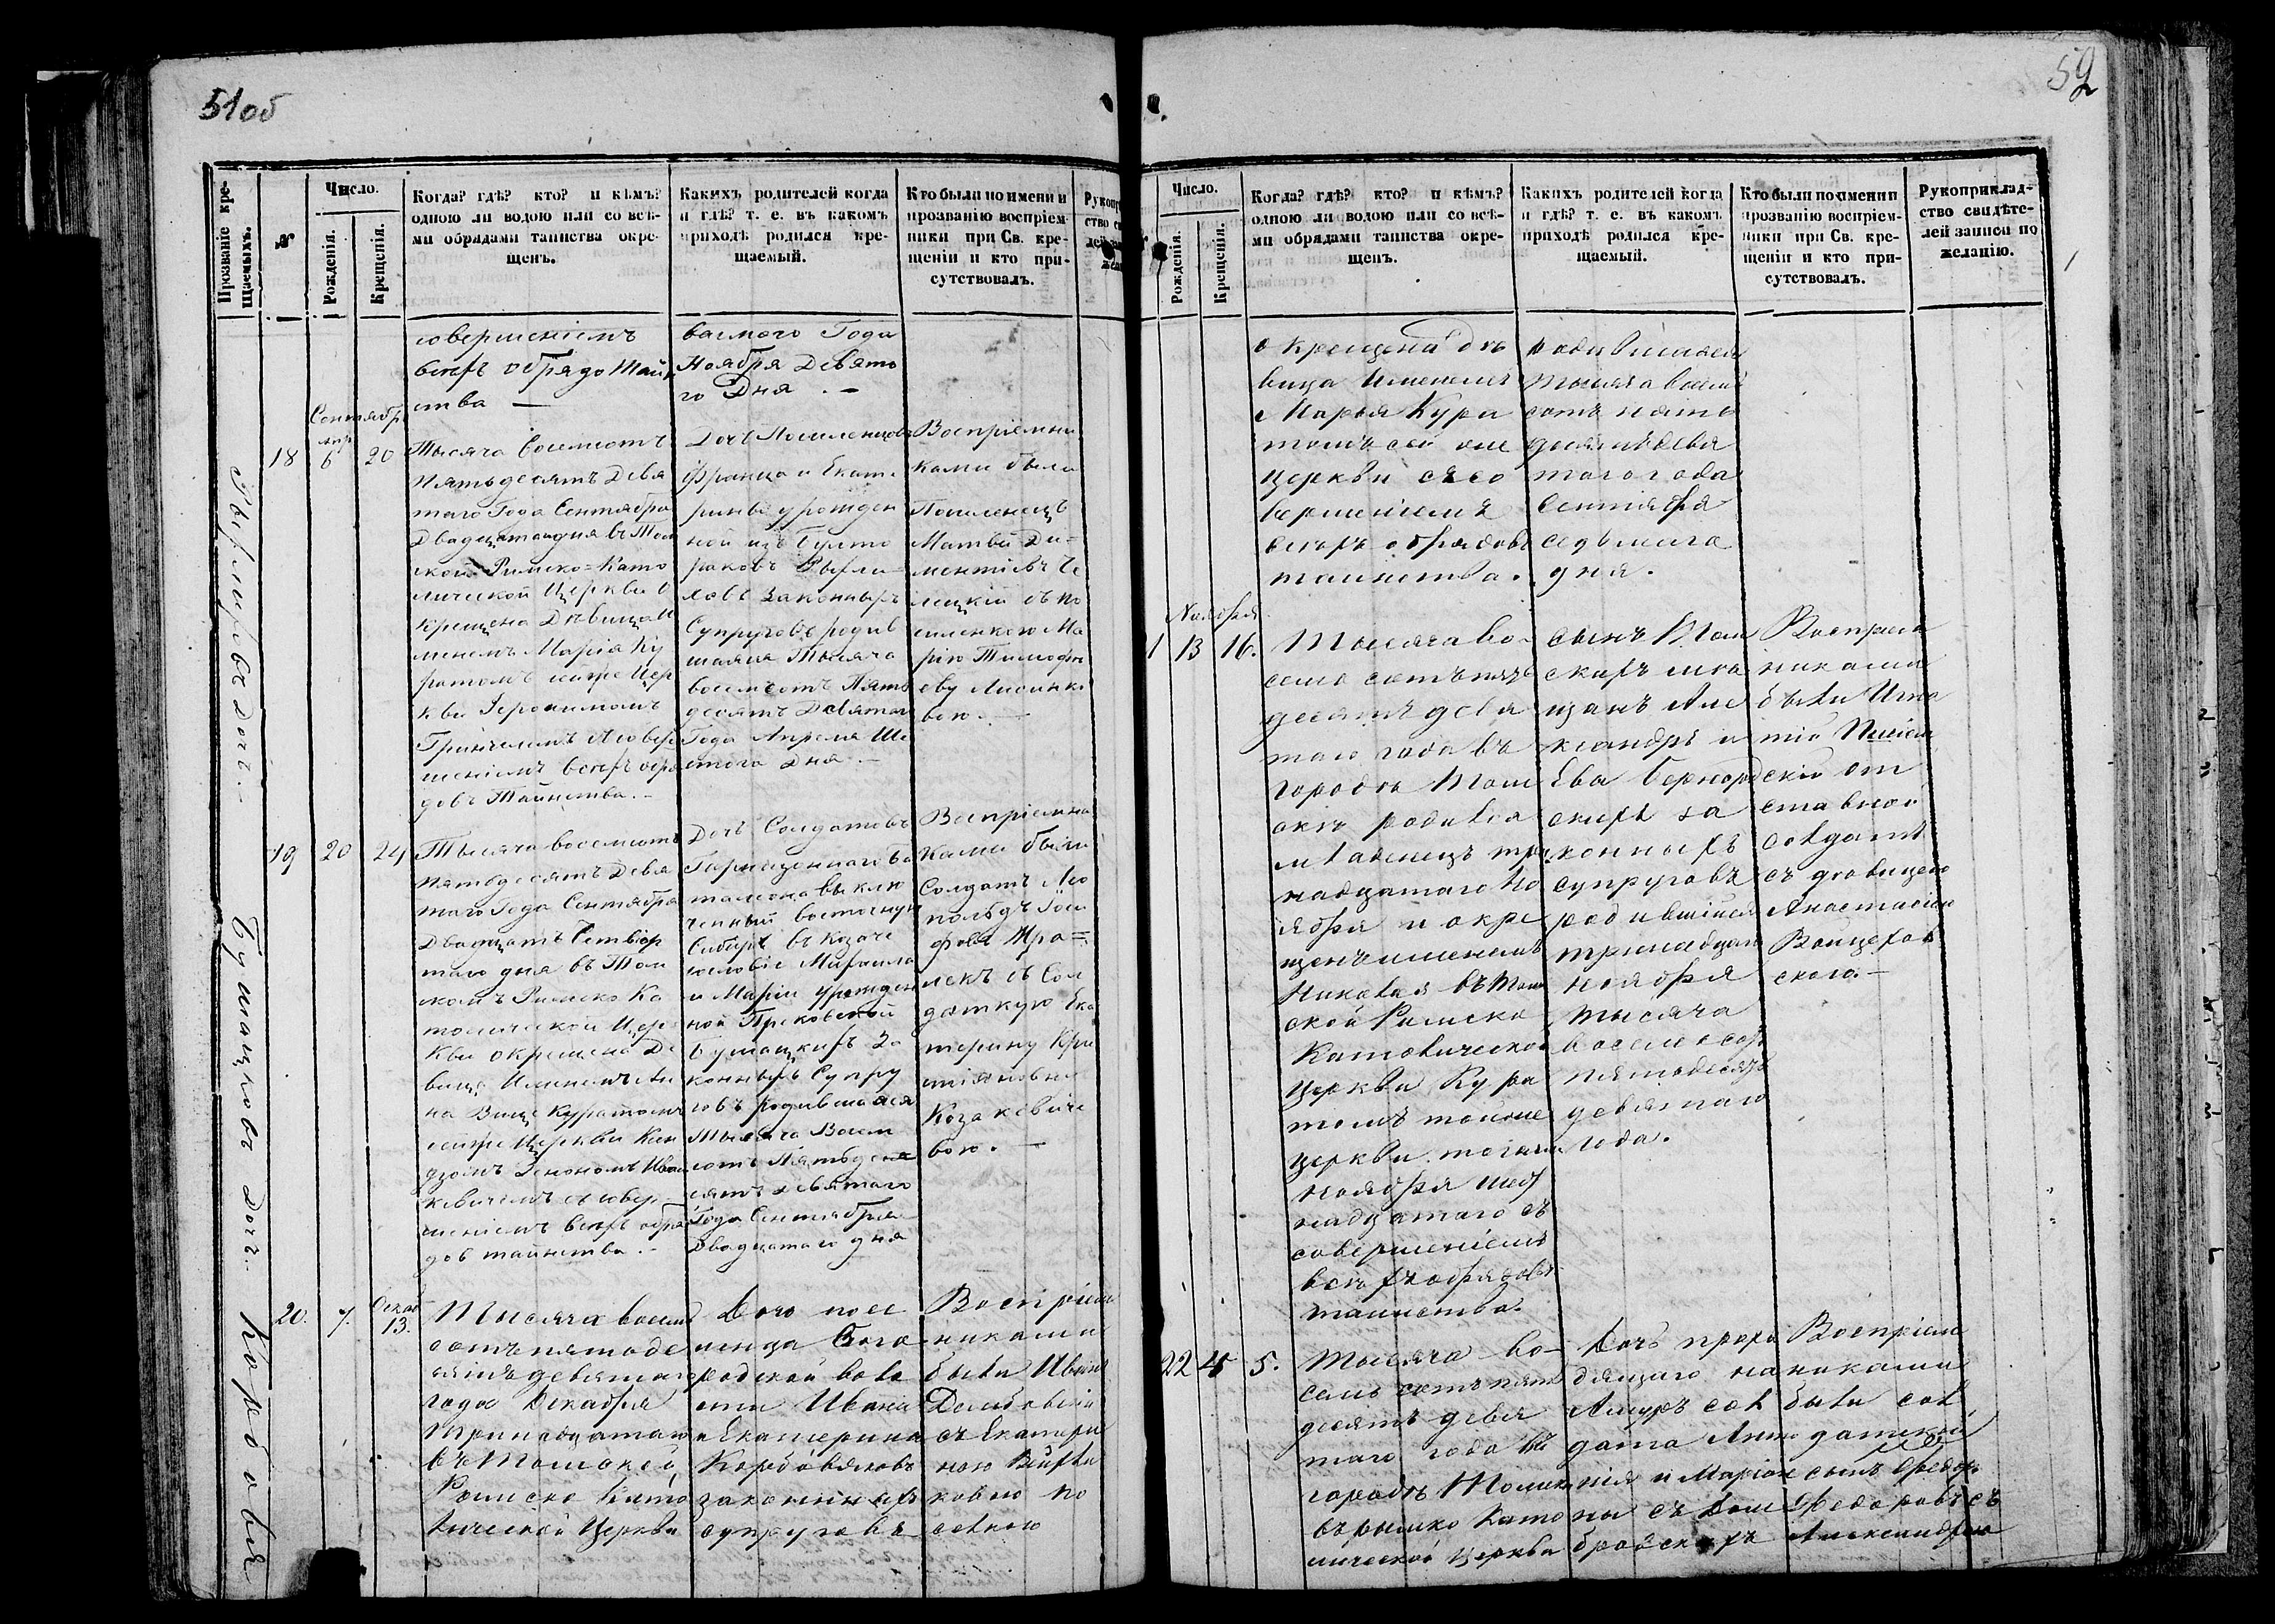 51об
Прозваніе кре-
щаемыхъ.
№
Число.
Рожденія.
Крещенія.
Когда? гдѣ? кто? и кѣмъ?
одною ли водою или со всѣ-
ми обрядами таинства окре-
щенъ.
Какихъ родителей когда
и гдѣ? т. е. въ какомъ
приходѣ родился кре-
щаемый.
Кто были по имени и
прозванію воспріем-
ники при Св. кре-
щеніи и кто при-
сутствовалъ.
совершеніемъ
всѣхъ обрядо Таин
ства —
ваемого Года
Ноября Девято
го Дня . —
Сентябр
18
Апр
6
20
Тысяча восемсотъ
Пятьдесятъ Девя
таго Года Сентября
Двадцатаго дня въ Том
ской Римско-Като
лической Церкви о
крещена Дѣвица И
менемъ Марія Ку
ратомъ сейже Цер
кви Іеронимомъ
шеніемъ всѣхъ обря
довъ Таинства. —
Дочь Посиленцовъ
Франца и Екате
рины урожден
ной изъ
законныхъ
Супруговъ родив
шаяся Тысяча
восемсотъ Пять
десятъ Девятаго
Года Апреля Ше
стого Дня. —
Воспріемни
ками были
Посиленецъ
Матвѣй Ди-
ментіевъ
съ по
силенкою Ма
рію Тимофе
еву
вою. —
19
20
24
Тысяча восемсотъ
Пятьдесятъ Девя
таго Года Сентября
Двадцать Четвер
таго дня въ Том
скомъ Римско Ка
толической Цер
кви окрещена Де
вица Именемъ Ан
на Вице Куратомъ
сейже Церкви Ксен
дзомъ Зенономъ Иваш
кевичемъ съ совер-
шеніемъ всѣхъ обря
довъ таинства. —
Дочь Солдатовъ
Гарнизоннаго Ба
таліона выклю
ченный восточную
Сибирь въ козаче
сословіе Михаила
и Маріи урожден
ной
Бумацкихъ За
конныхъ Супру
говъ родившаяся
Тысяча Восем
сотъ Пятьде
сятъ девятаго
Года Сентября
Двадцатаго дня
Воспріемни
ками были
Солдатъ Лео
польдъ
съ Сол
даткую Ека
терину Кри
стіановну
Козакевиче
вою. —
Бумацковъ дочь.
20.
7.
Декаб
13.
Тысяча восем
сотъ пятьде
сятъ девятаго
года Декабря
Тринадцатаго
въ Томской
Римско Като
лической Церкви
Дочь посе
ленца Бого
родской воло
сти Ивана
и Екатерины
Корбовяковъ
законныхъ
супруговъ
Воспріем
никами
были Иванъ
съ Екатери
ною
52
Число.
Рожденія.
Крещенія.
Когда? гдѣ? кто? и кѣмъ?
одною ли водою или со всѣ-
ми обрядами таинства окре-
щенъ.
Какихъ родителей когда
и гдѣ? т. е. въ какомъ
приходѣ родился кре-
щаемый.
Кто были по имени и
прозванію воспріем-
ники при Св. кре-
щеніи и кто при-
сутствовалъ.
Рукоприклад-
ство свидѣте-
лей записи по
желанію.
окрещена дѣ
вица Именемъ
Марья Кура
томъ сей же
церкви съ со
вершеніемъ
всѣхъ обрядовъ
таинства.
родившаяся
тысяча восем
сотъ пять
десятъ девя
таго года
Сентября
седьмаго
дня.
Ноября
1
13
16.
Тысяча во-
семь сотъ пять
десятъ девя
таго года въ
городѣ Том
скѣ родился
младенецъ три
надцатаго Но
ября и окре
щенъ именемъ
Николая въ Том
ской Римско
Католической
Церкви Кура
томъ тойже
Церкви тогоже
Ноября шест
надцатаго съ
совершеніемъ
всѣхъ обрядовъ
таинства.
сынъ Том
скихъ мѣ
щанъ Але
ксандръ и
Ева Бернард
скихъ за
конныхъ
супруговъ
родившійся
тринадцат
ноября
тысяча
восемь сотъ
пятьдесятъ
девятаго
года.
Воспріем
никами
были Игна
тій
скій от
ставной
солдатъ
съ дѣвицею
Анастасіею
Войцехов
скою. —
22
4
5.
Тысяча во-
семь сотъ пят
десятъ девя
таго года въ
городѣ Томск
въ рымско Като
лической Церкви
Дочь прохо
дящаго на
Амуръ сол
дата Анто
нія и Маріан
ны съ Дом
бровскихъ
Воспріем
никами
были сол
датской
сынъ Федор
Федоровъ съ
Александрою